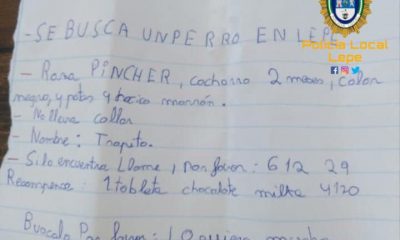 -SE BUSCA UN PERRO EN LEPE
Policía Local
Lepe
- Raza PINCHER, cachorro 2 meses, color
negro, y patas y hocico marrón.
- No lleva collar
- Nombre: Trapito.
- Si lo encuentra Llame, por favor: 612 29
Recompensa: 1 tableta chocolate milka 4120
Buscalo Por favor: Lo quiero mucho